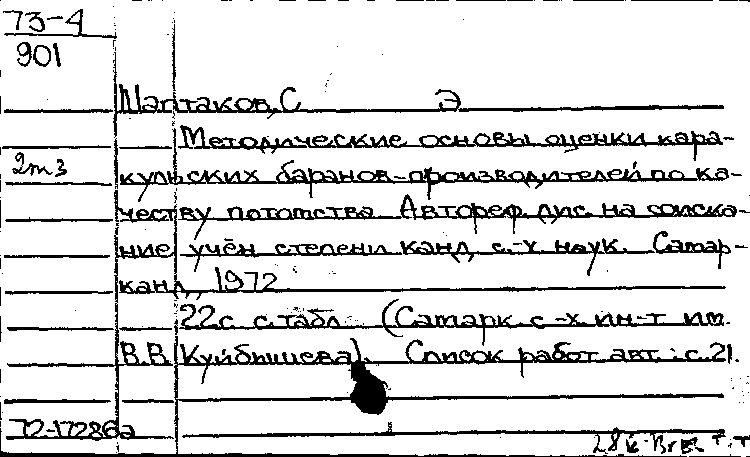 73-4
901
Шаптаков, С Э
Методические основы оценки кара-
2т3 кульских баранов-производителей по ка-
честву потомства. Автореф. дис. на соиска-
ние учён степени канд. с.-х. наук. Самар-
канд, 1972
22с. с табл. (Самарк. с-х. ин-т им.
В.В. Куйбышева). Список работ авт.: с. 21.
72-17286а